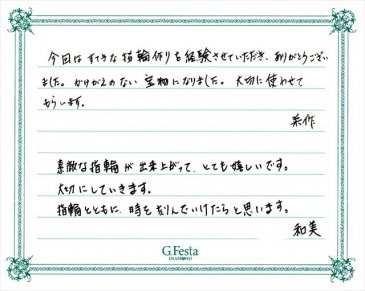 今回はすてきな指輪作りを経験させていただき、ありがとうござい
ました。かけがえのない宝物になりました。大切に使わせて
もらいます。
素敵な指輪が出来上がって、とても嬉しいです。
大切にしていきます。
指輪とともに、時を刻んでいけたらと思います。
和美
G.Festa
DIAMOND